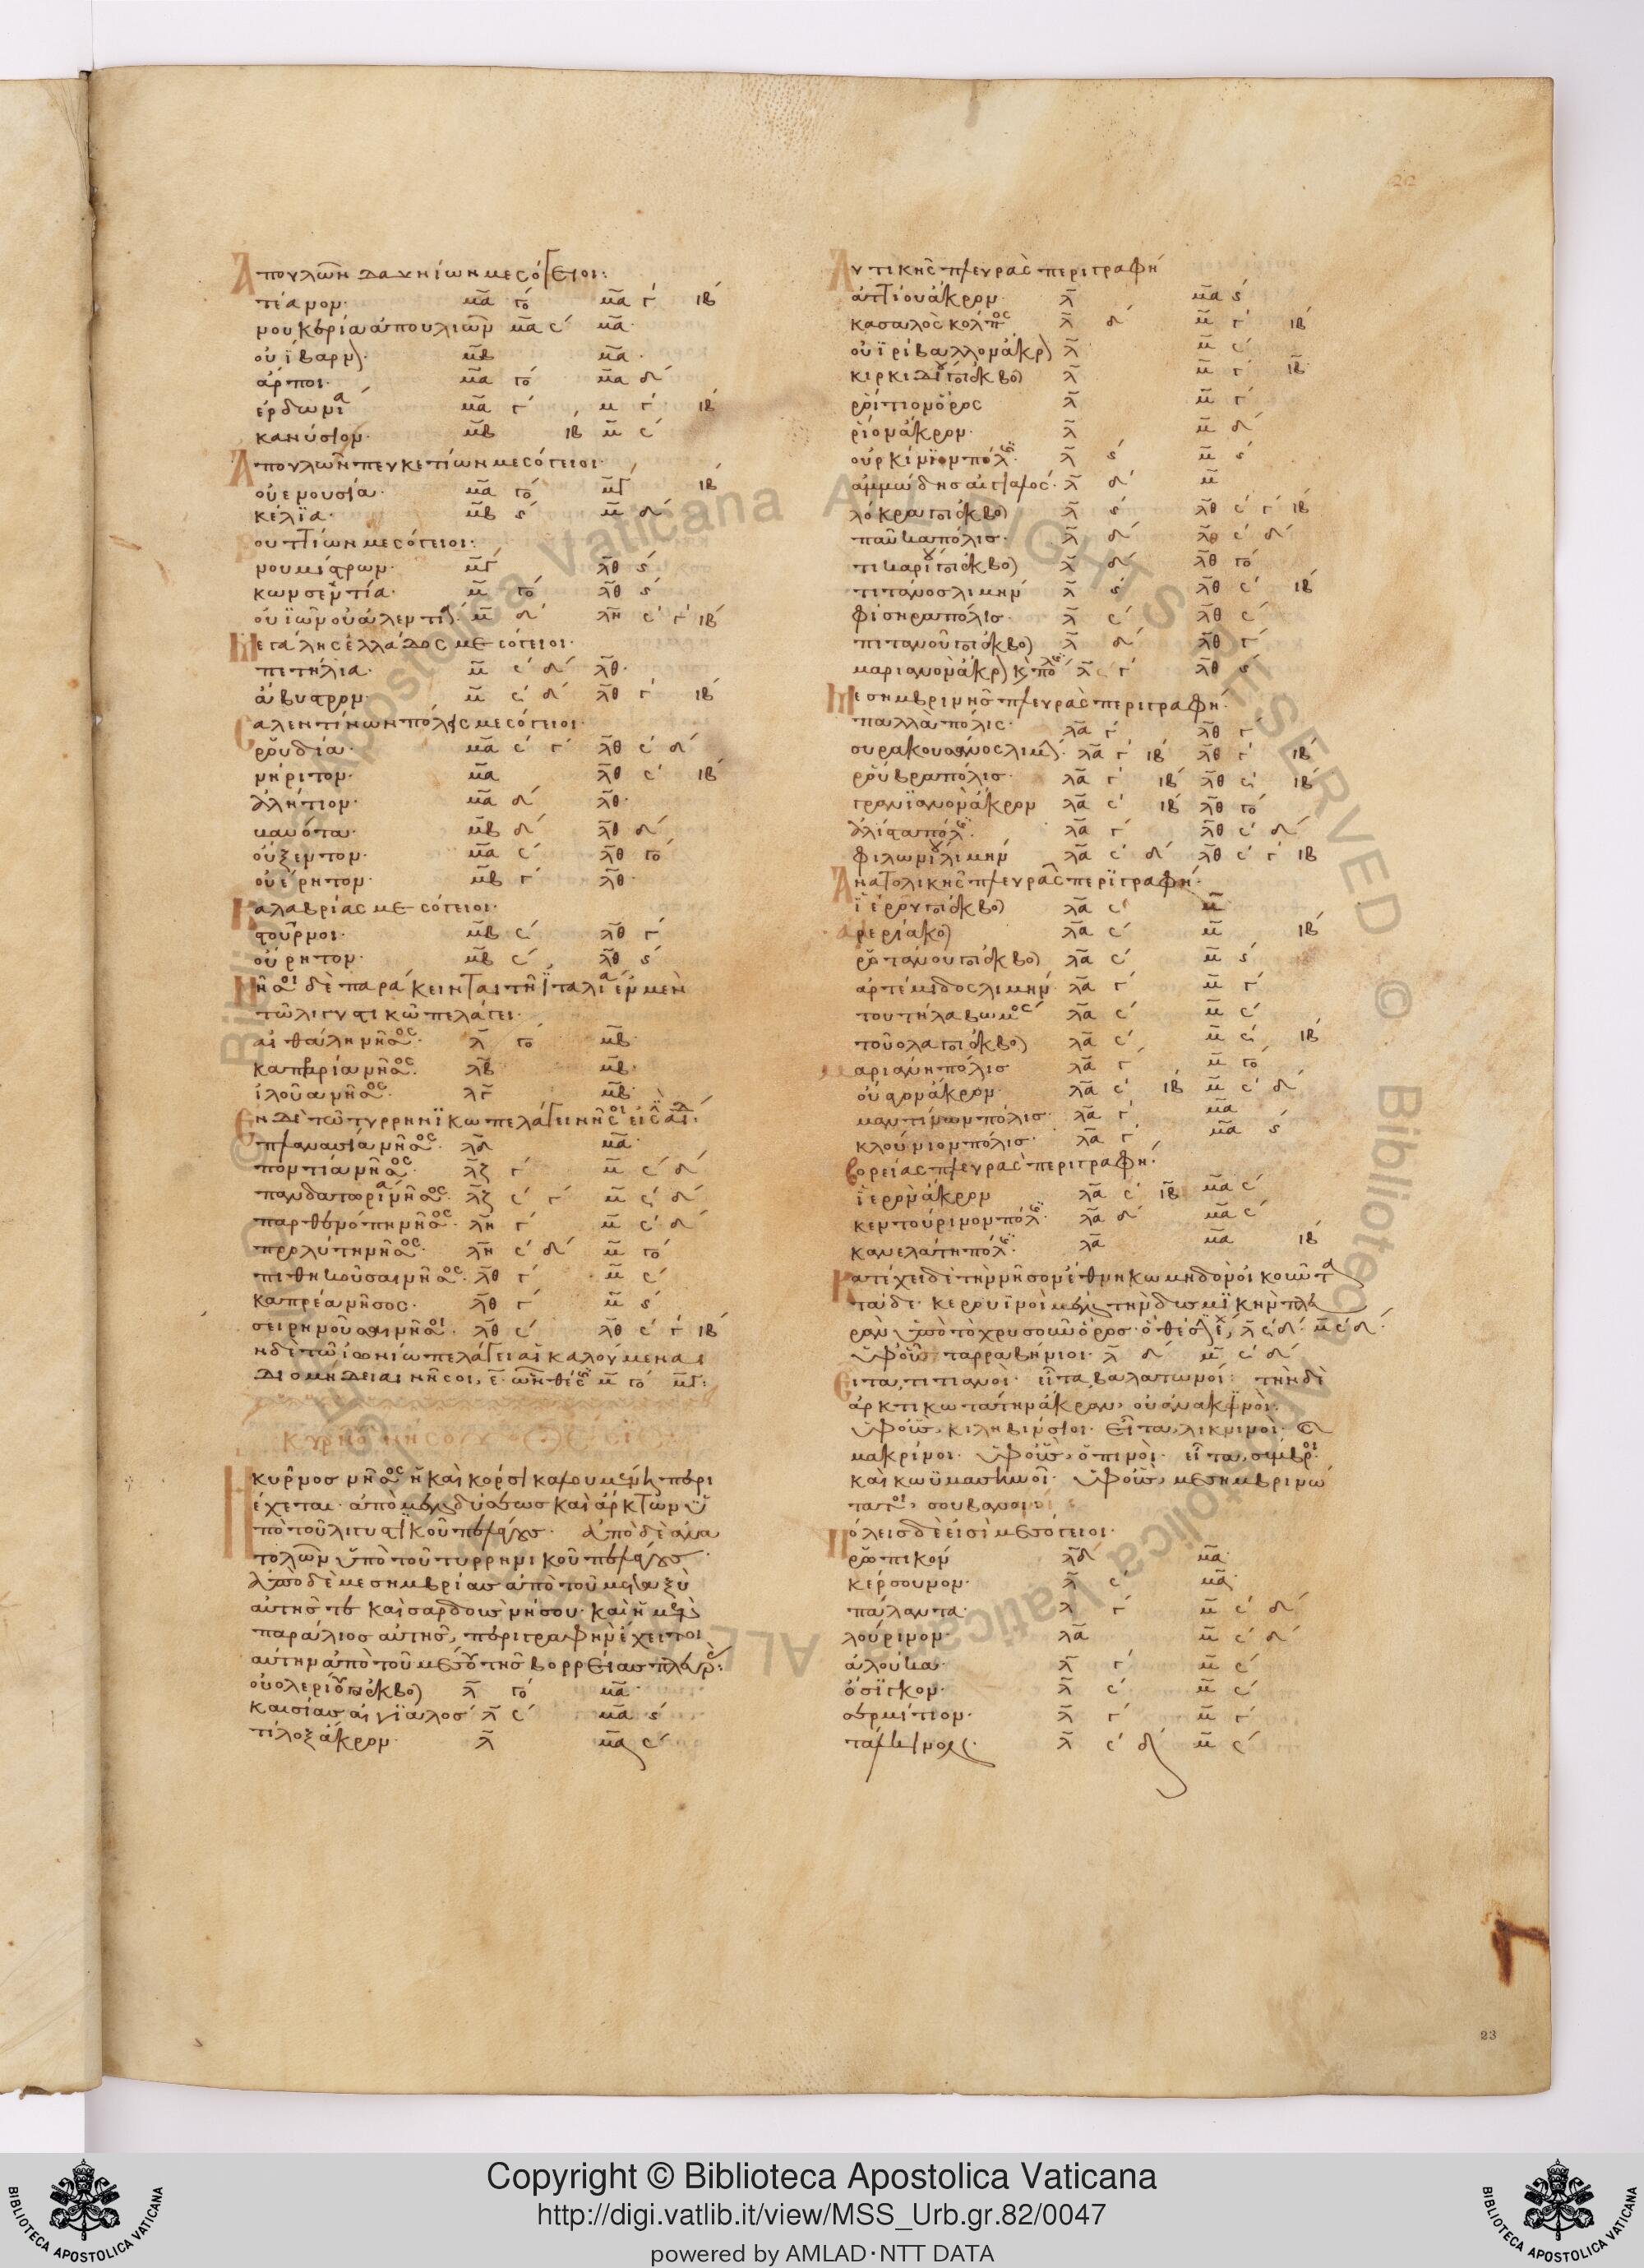 Ἀπουλῶν Δαυνίων μεσόγειοι:
τέανον· μα γο μα γ ιβ
νουκερία ἀπουλιῶν μα ς μα·
οὐΐβαρν) μβ μα·
ἄρποι· μα γο μα δ
ἐρδωνία μα γ μ γ ιβ
κανύσιον· μβ ιβ μ ς
Ἀπουλῶν πευκετίων μεσόγειοι·
οὐενουσία· μα γο μγ ιβ
κέλϊα· μβ ς μ δ
ουττίων μεσόγειοι:
νουμίστρων· μγ λθ ς
κωνσεντία· μ γο λθ ς
οὐϊῶν οὐάλεντία· μ δ λη ς γ ιβ
Μεγάλης ἑλλάδος μεσόγειοι·
πετηλία· μ ς δ λθ·
ἄβυστρον· μ ς δ λθ γ ιβ
Σαλεντίνων πόλεις μεσόγειοι·
ῥουδία· μα ς γ λθ ς δ
νήριτον· μα λθ ς ιβ
ἀλήτιον· μα δ λθ·
βαυότα· μβ δ λθ δ
οὔξεντον· μα ς λθ γο
οὐέρητον· μβ γ λθ·
Καλαβρίας μεσόγειοι·
στοῦρνοι· μβ ς λθ γ
οὔρητον· μβ ς λθ ς
Νῆσοι δὲ παράκεινται τῆ ἰταλία ἐν μὲν
τῶ λιγυστικῶ πελάγει·
αἰθάλη νῆσος· λ γο μβ·
καπραρία νῆσος· λβ μβ·
ἰλοῦα νῆσος· λγ μβ·
Ἐν δὲ τῶ τυρρηνϊκῶ πελάγει νῆσοι εἰσὶν αἵδε·
πλανασία νῆσος· λδ μα·
ποντία νῆσος· λζ γ μ ς δ
πανδατωρία νῆσος· λζ ς γ μ ς δ
παρθενόπη νῆσος· λη γ μ ς δ
προχύτη νῆσος· λη ς δ μ γο
πιθηκοῦσαι νῆσος· λθ γ μ ς
καπρέα νῆσος· λθ γ μ ς
σειρηνοῦσαι νῆσοι· λθ ς λθ ς γ ιβ
ν δὲ τῶ ἰονίω πελάγει αἱ καλούμεναι
διομήδειαι νῆσοι, ε· ὧν θέσις μ γο μγ:
Κύρνου νήσου θέσις:
Ἡ κύρνος νῆσος ἣ καὶ κορσίκα καλουμένη περι
έχεται· ἀπὸ μὲν δύσεως καὶ ἄρκτων ὑ
πὸ τοῦ λιγυστικοῦ πελάγους· ἀπὸ δὲ ἀνα
τολῶν ὑπὸ τοῦ τυρρηνικοῦ πελάγους·
ἀπὸ δὲ μεσημβρίας ἀπὸ τοῦ μεταξὺ
αὐτῆς τε καὶ σαρδοῦς νήσου· καὶ ἡ μὲν
παράλιος αὐτῆς, περιγραφὴν ἔχει τοι
αύτην ἀπὸ τοῦ μέσου τῆς βορρείας πλευρᾶς:
οὐολερίου ποτ ἐκβο) λ γο μα·
καισίας αἰγϊαλός λ ς μα ς
τίλοξ ἄκρον· λ μα ς
Δυτικῆς πλευρᾶς περιγραφή
ἀττίου ἄκρον· λ μα ς
κασαλὸς κόλπος λ δ μ γ ιβ
οὐϊρίβαλλον ἄκρ) λ μ ς
κιρκιδίου ποτ ἐκβο) λ μ γ ιβ
ῥοίτιον ὄρος λ μ γ
ῥίον ἄκρον· λ μ δ
οὐρκίνϊον πόλις· λ ς μ ς
ἀμμώδης αἰγιαλός· λ δ μ
λόκρα ποτ ἐκβο) λ ς λθ ς γ ιβ
παῦκα πόλις· λ δ λθ ς δ
τικαρίου ποτ ἐκβο) λ δ λθ γο
τιτανος λιμήν λ ς λθ ς ιβ
φίσηρα πόλις· λ ς λθ ς
πιτανοῦ ποτ ἐκβο) λ δ λθ γ
μαριανον ἄκρ) κ πόλις λ γ λθ ς
Μεσημβρινῆς πλευρᾶς περιγραφή·
παλλὰ πόλις· λα γ λθ γ
συρακουσανος λιμ)· λα γ ιβ λθ γ ιβ
ῥοῦβρα πόλις· λα γ ιβ λθ ς ιβ
γρανϊανον ἄκρον λα ς ιβ λθ γο
ἀλίστα πόλις· λα γ λθ ς δ
φιλωνίου λιμήν λα ς δ λθ ς γ ιβ
Ἀνατολικῆς πλευρᾶς περϊγραφή·
ϊἑροῦ ποτ ἐκβο) λα ς μ
ἀρερία κο) λα ς μ ιβ
ῥοτανου ποτ ἐκβο) λα ς μ ς
ἀρτέμιδος λιμήν λα γ μ γ
τουτήλα βωμος λα ς μ ς
τοῦολα ποτ ἐκβο) λα ς μ ς ιβ
μαριανὴ πόλις λα γ μ γο
οὐαρον ἄκρον· λα ς ιβ μ ς δ
μαντίνων πόλις· λα γ μα
κλούνιον πόλις· λα γ μα ς
βορείας πλευρᾶς περιγραφή·
ϊερὸν ἄκρον λα ς ιβ μα ς
κεντούρινον πόλις· λα δ μα ς
κανελάτη πόλις· λα μα ιβ
Κατέχει δὲ τὴν νῆσον ἔθνη κωμηδὸν οἰκοῦντα
τάδε· κερουϊνοὶ μὲν τὴν δυσμϊκὴν πλευ
ρὰν ὑπὸ τὸ χρυσοῦν ὄρος· ὃ θέσιν ἔχει, λ ς δ· μ ς δ·
ὑφοῦς ταρραβήνιοι· λ δ μ ς δ
Εἶτα, τιτιανοί· εἶτα, βαλατωνοί: τὴν δὲ
ἀρκτικωτάτην ἄκραν, οὐανακϊνοὶ.
ὑφοῦς, κιληβένσιοι· εἶτα, λικνινοί·
μακρίνοι· ὑφοῦς, ὄπινοὶ· εἶτα, σιμβροί
καὶ κωϋμασηνοί· ὑφοῦς, μεσημβρινώ
τατοι, σουβανοί:
Πόλεις δὲ εἰσὶ μεσόγειοι·
ῥόπικον λδ μα·
κέρσουνον· λ ς μα·
πάλαντα· λ γ μ ς δ
λούρινον· λα μ ς δ
ἀλούκα· λ γ μ ς
ὄσϊγκον· λ ς μ ς
σέρμιτιον· λ γ μ γ
τάλκινος· λ ς δ μ ς
23
Copyright © Biblioteca Apostolica Vaticana
http://digi.vatlib.it/view/MSS_Urb.gr.82/0047
powered by AMLAD·NTT DATA
BIBLIOTECA APOSTOLICA VATICANA
BIBLIOTECA APOSTOLICA VATICANA